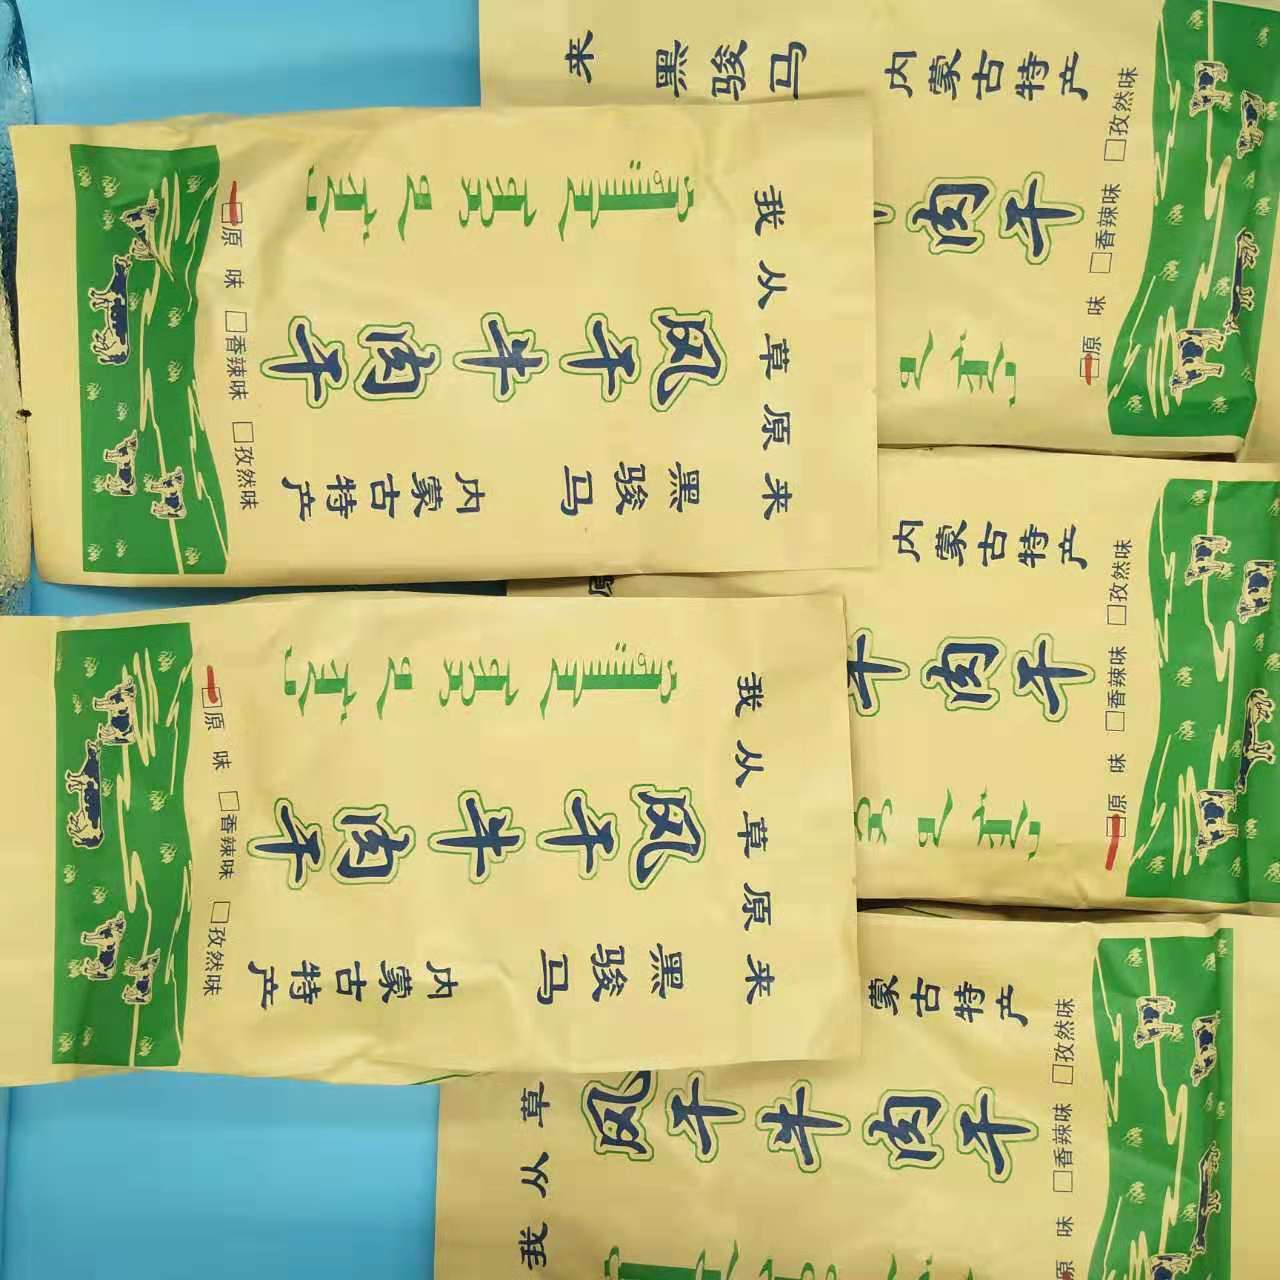 我从草原来
风干牛肉干
黑骏马 内蒙古特产
原味 香辣味 孜然味
来
黑骏马 内蒙古特产
肉干
原味 香辣味 孜然味
我从草原来
风干牛肉干
黑骏马 内蒙古特产
原味 香辣味 孜然味
内蒙古特产
牛肉干
原味 香辣味 孜然味
我从草
蒙古特产
风干牛肉干
原味 香辣味 孜然味